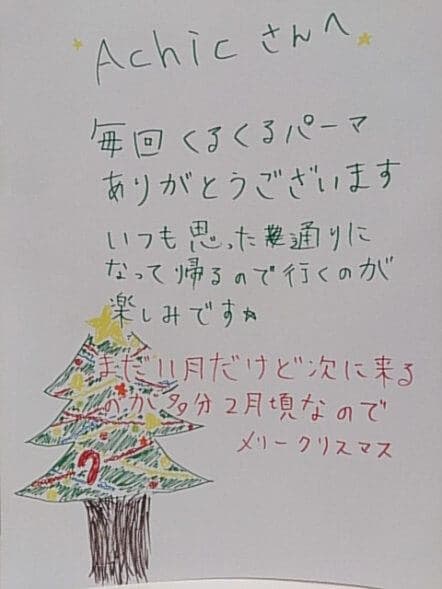 Achicさんへ
毎回くるくるパーマ
ありがとうございます
いつも思った通りに
なって帰るので行くのが
楽しみです☆
まだ11月だけど次に来る
のが多分2月頃なので
メリークリスマス